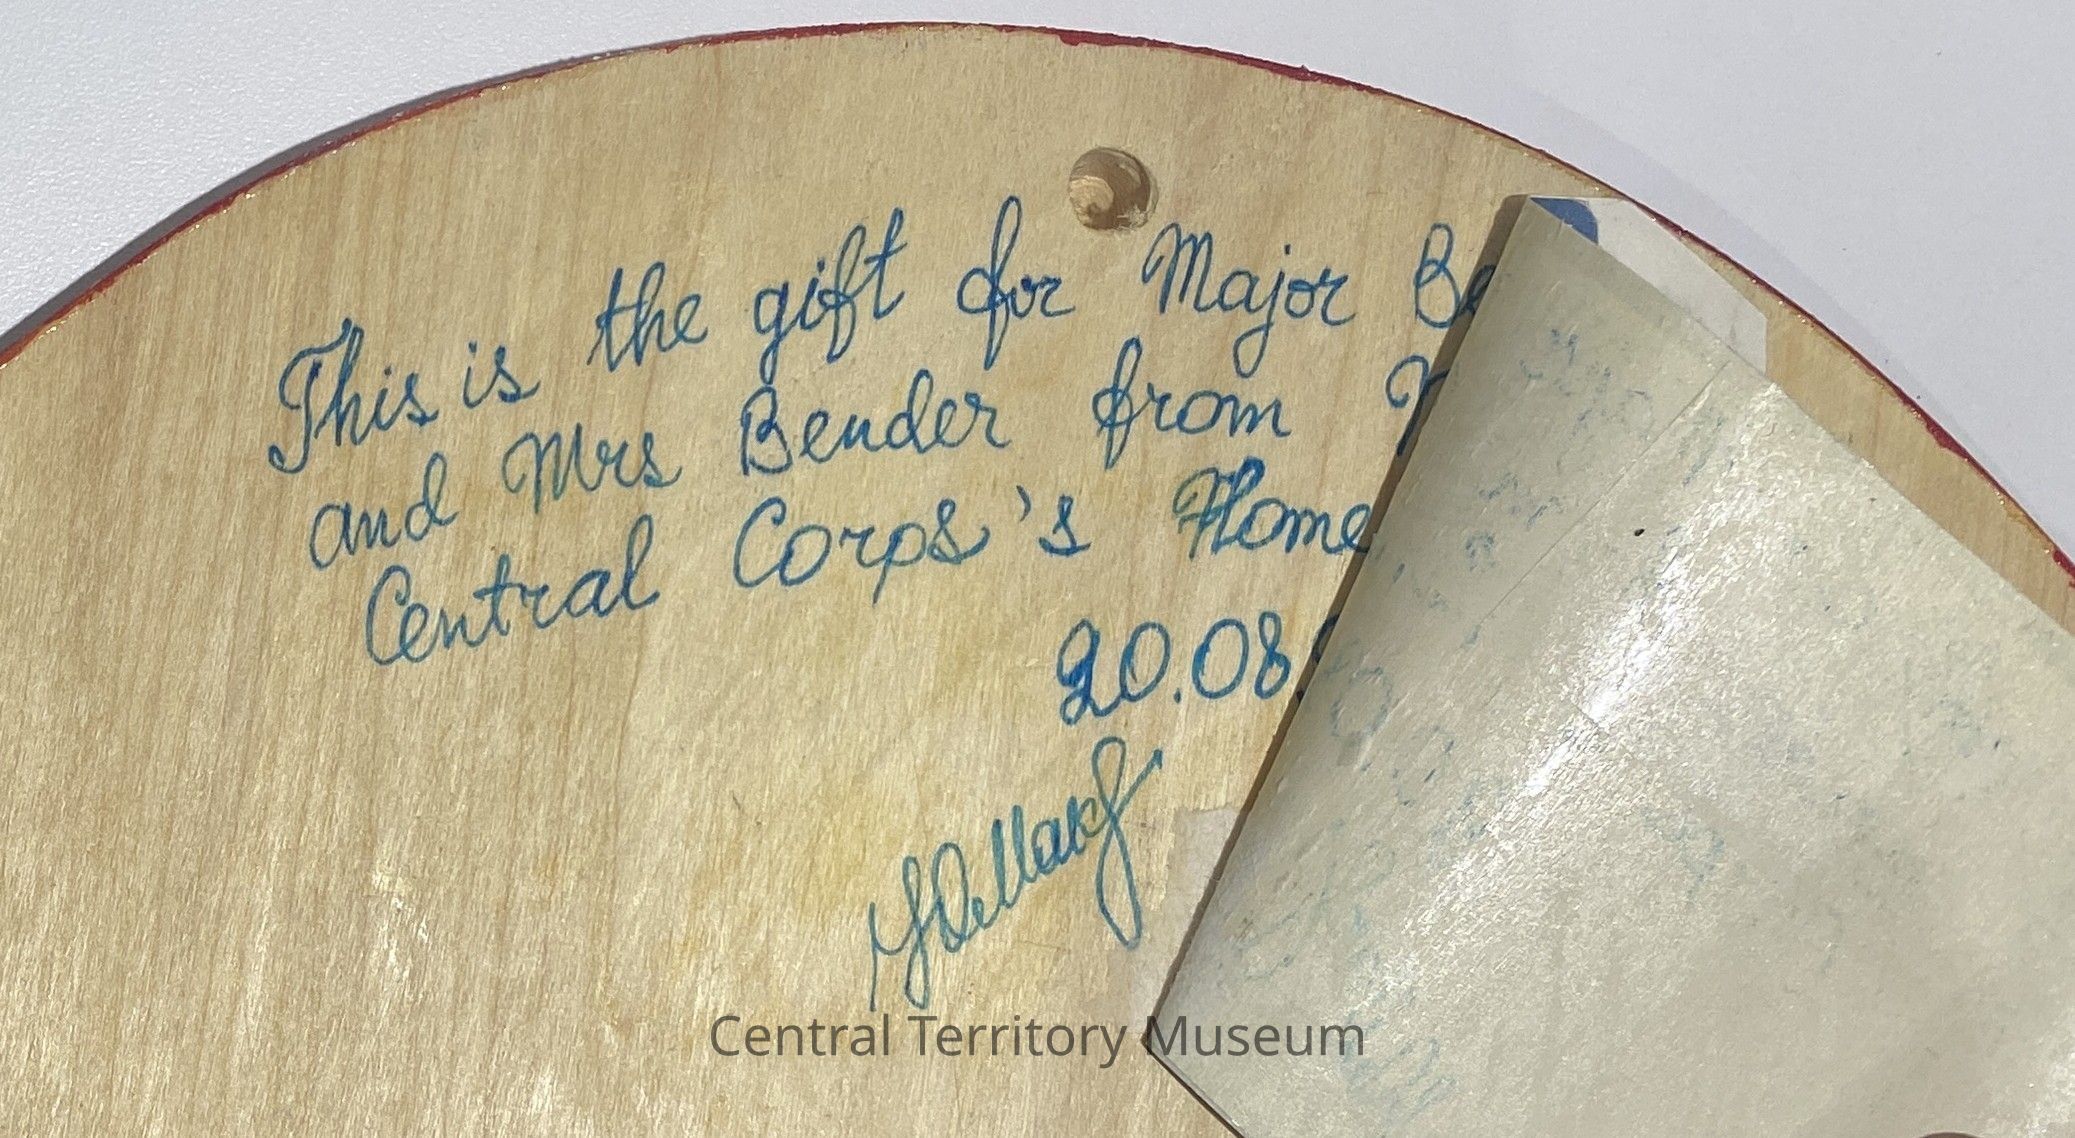 This is the gift for Major Be
and Mrs Bender from
Central Corps's Home
20.08.
Central Territory Museum